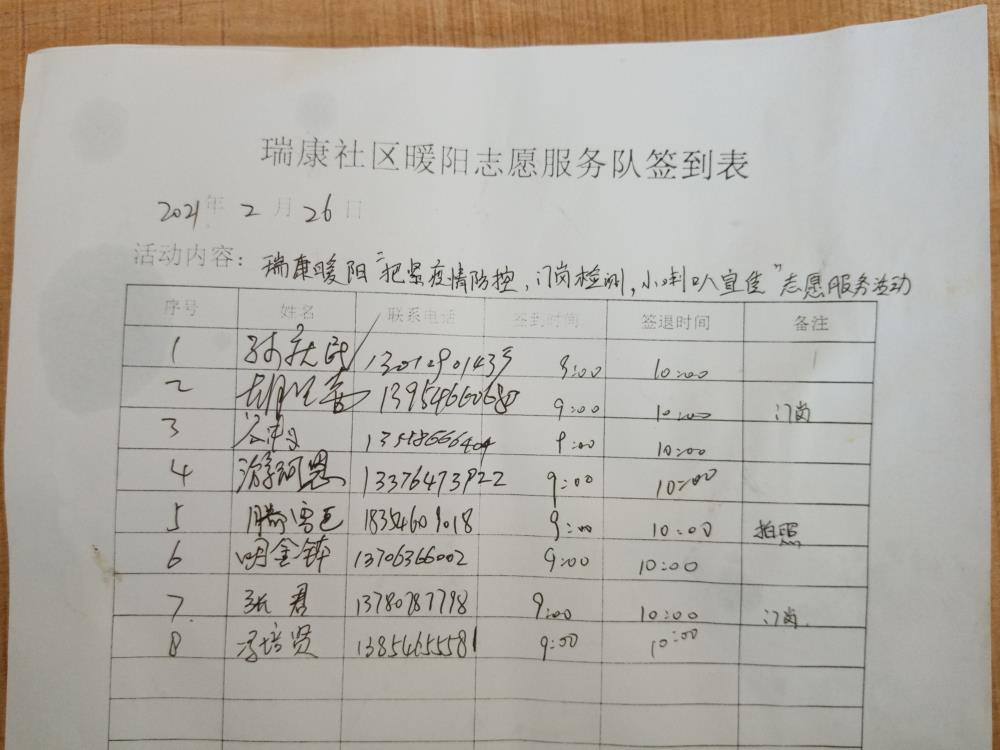 瑞康社区暖阳志愿服务队签到表
2021年 2 月 26 日
活动内容：瑞康暖阳"把紧疫情防控，门岗检测，小喇叭宣传"志愿服务活动
序号 姓名 联系电话 签到时间 签退时间 备注
1 10:00
2 13954660680 9:00 10:00 门岗
3 13558666404 9:00 10:00
4 13376473922 9:00 10:00
5 18354609018 9:00 10:00 拍照
6 明金钟 13706366002 9:00 10:00
7 张君 13780787798 9:00 10:00 门岗
8 培贤 13854655581 9:00 10:00